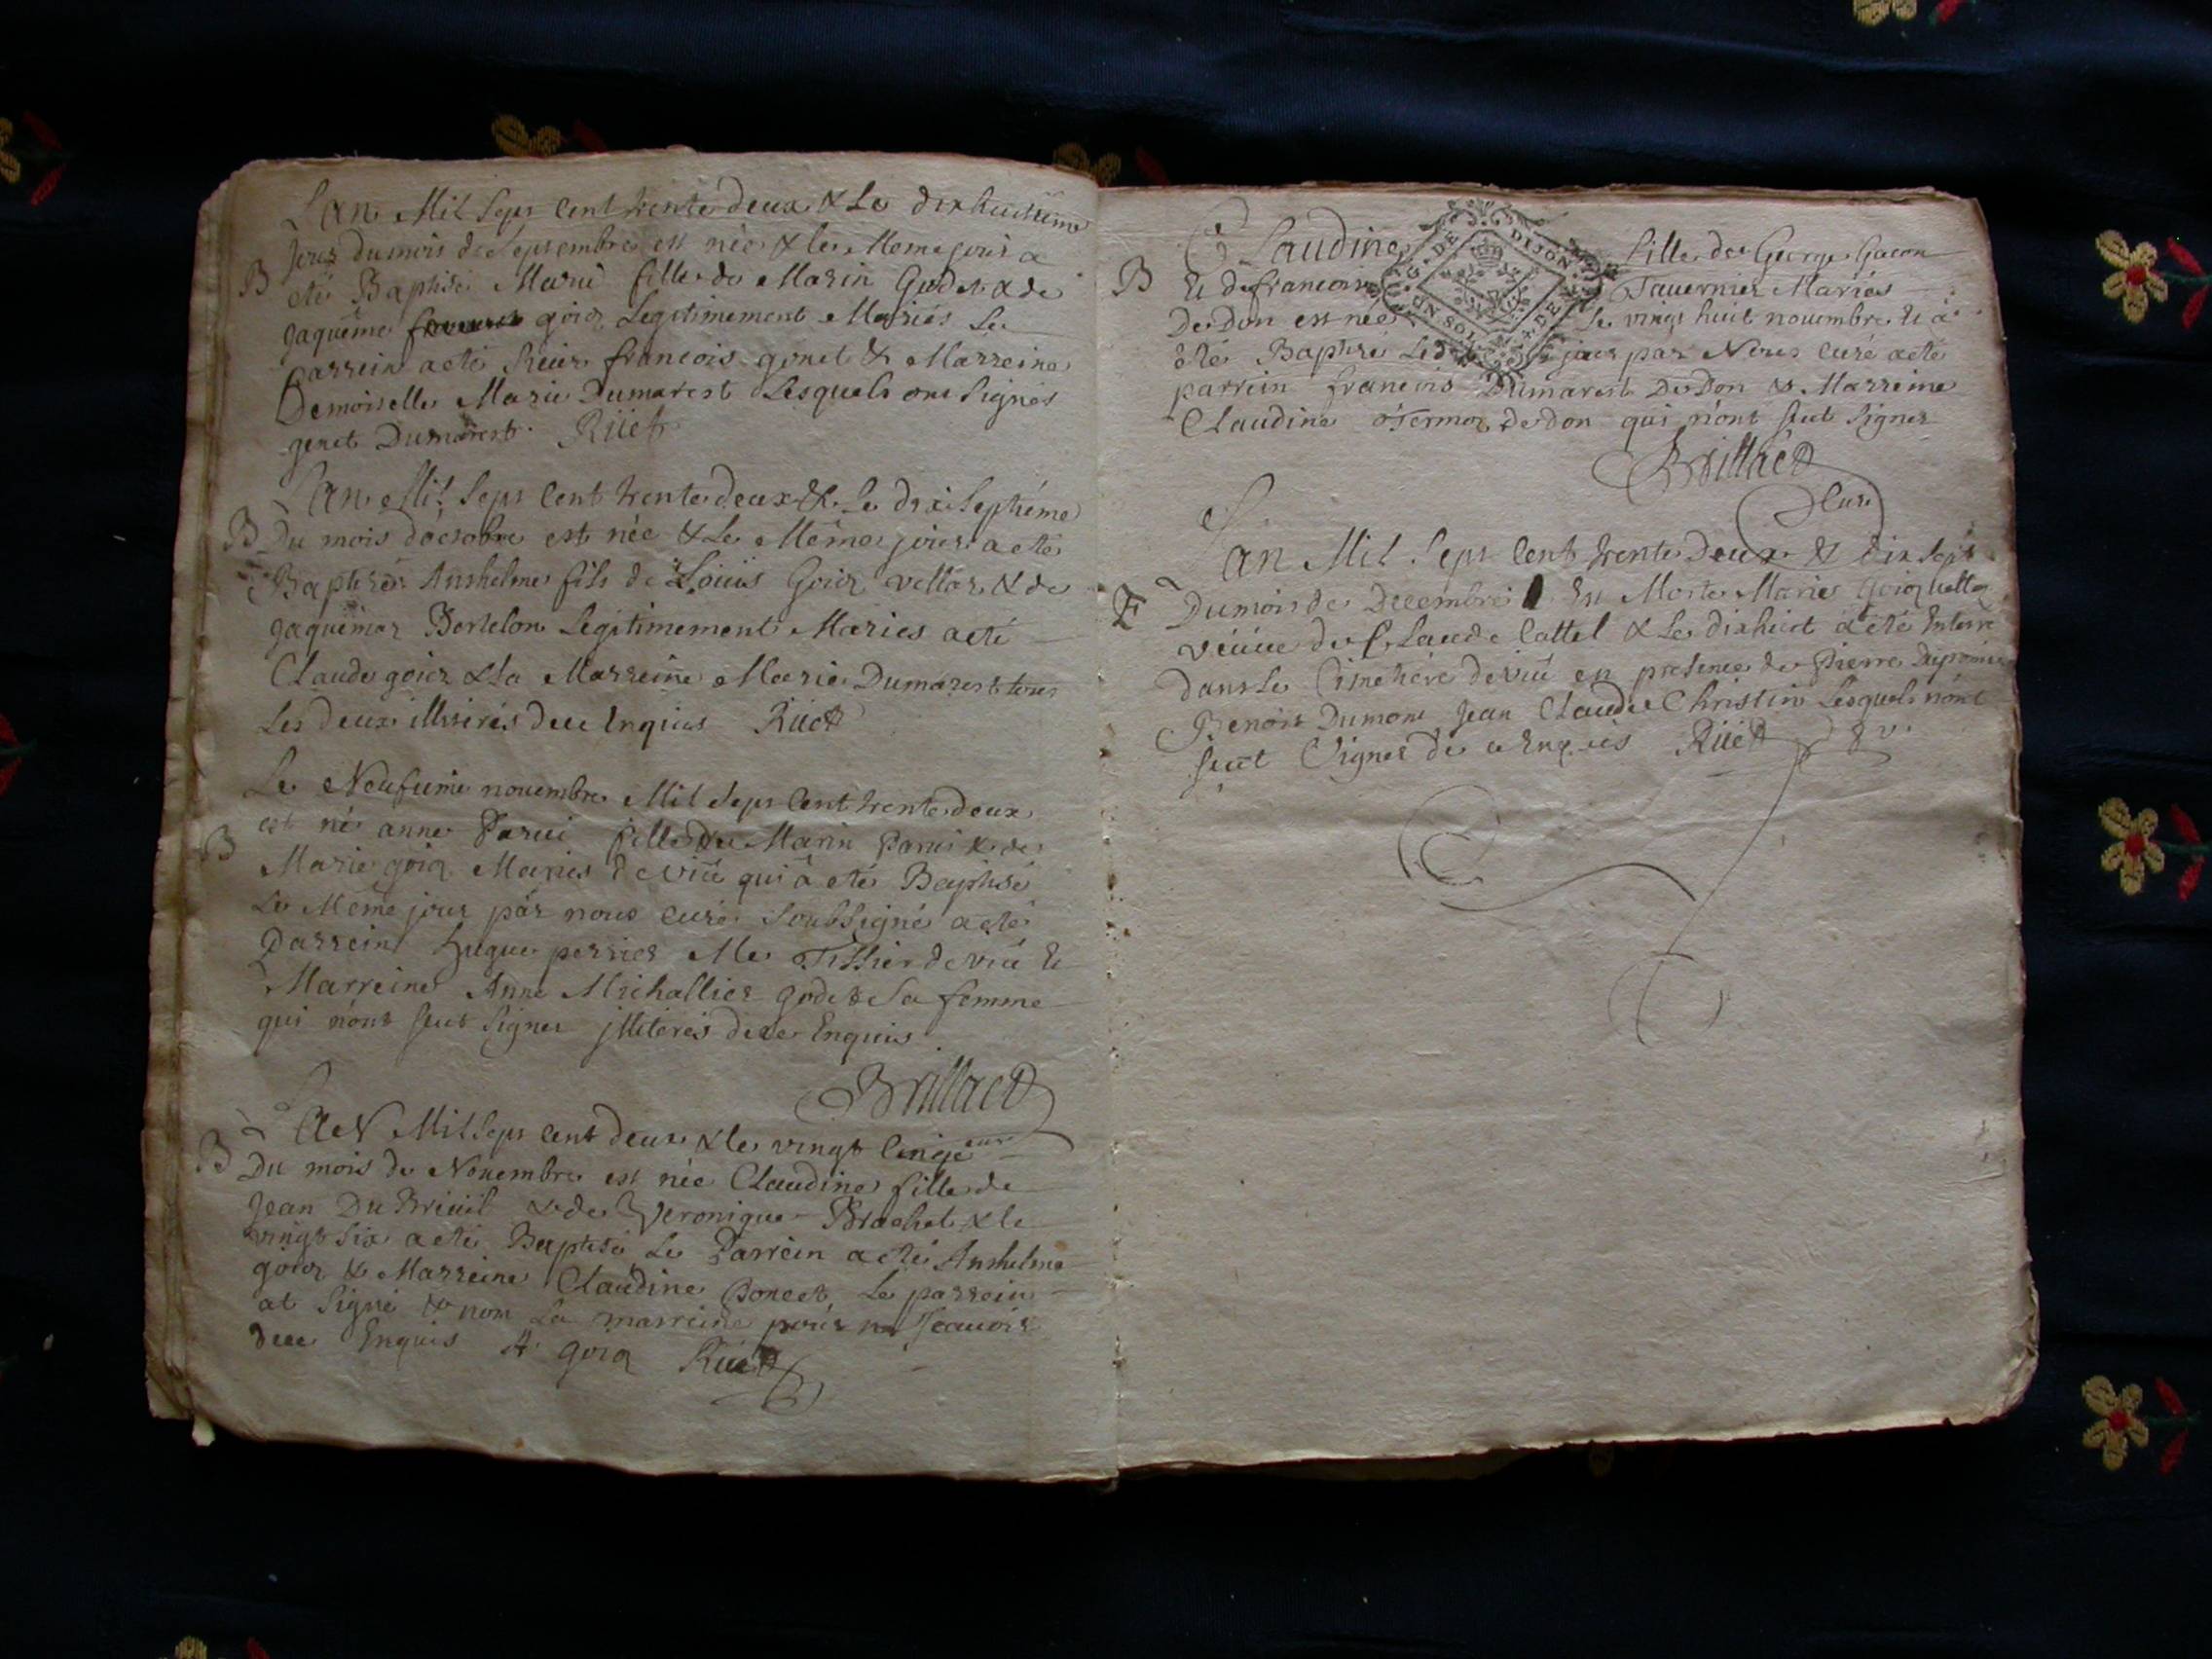 Lan Mil Sept Cent trente deux & Le dix huictieme
Jour du mois de Septembre est née & le Meme jour a
B
eté Baptisé Marie fille de Marin Godet & de
Jaquême goiot Legitimement Mariés Le
Parrein a eté Sieur francois genet & Marreine
Demoiselle Marie Dumarest Lesquels ont Signés
genet Dumarest. Rüet
Lan Mil Sept Cent trente deux & Le dix Septiéme
B
Du mois d'octobre est née & Le Méme jour a eté
Baptisér Anthelme fils de Loüis Goiot vettar & de
Jaquémaz Bertelon Legitimement Mariés a eté
Claude goiot & La Marreine Marie Dumarest tous
Les deux illiterés de ce Enquis Rüet
Le Neufieme nouembre Mil Sept Cent trente deux
est né anne Parui fille de Marin Parui & de
B
Marie goiot Mariés de viü qui a eté Baptisé
Le Meme jour par nous curé Soussigné a eté
Parrein hugue perrier Me Tissier de viü Et
Marreine Anne Michallier godet Sa femme
qui n'ont seut Signer jlliterés de ce Enquis
Brillact
curé
Lan Mil Sept Cent deux & le vingt Cinqe
B
Du mois de Nouembre est née Claudine fille de
Jean Du Breüil & de Veronique Brachet & le
vingt Six a eté Baptisé Le Parrein a eté Anthelme
goiot & Marreine Claudine Poncet Le parrein
at Signé & non La marreine pour ne Scauoir
de ce Enquis A goiot Rüet
Claudine fille de George Gacon
B
Et de francoise Tauernier Mariés
De Don est née Le vingt huit nouembre Et a
été Baptisé Led jour par Nous curé a eté
parrein francois Dumarest De Don & Marreine
Claudine Termoz de don qui n'ont seut Signer
Brillact
Curé
G. DE DIJON
UN SOL 4. DE
Lan Mil Sept Cent trente Deux & dix Sept
E
Du mois de Decembre Est Morte Marie goiot vettar
veüue de Claude Cattel & Le dixhuit a eté Enterré
dans Le Cimetiére de viü en presence de Pierre
Benoit Dumont Jean Claude Christin Lesquels n'ont
seut Signer de ce Enquis Rüet